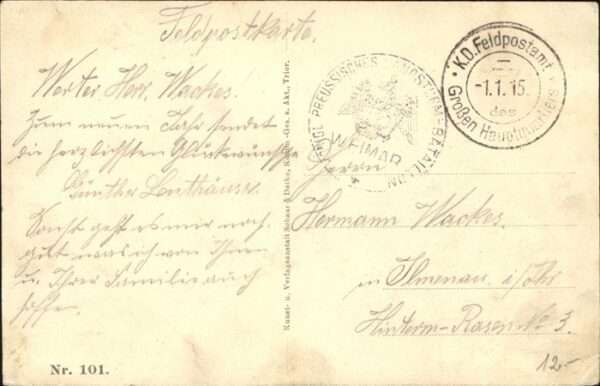 Feldpostkarte.
Werter Herr Wackes.
Zum neuen Jahr sendet
die herzlichsten Glückwünsche
Günther Lenthäuser.
Sonst geht es mir noch
gut was ich von Ihnen
u. Ihrer Familie auch
hoffe.
Nr. 101.
Kunst- u. Verlagsanstalt Schaar & Dathe, Komm.-Ges. a. Akt., Trier.
KÖNIGL. PREUSSISCHES BATAILLON
WEIMAR
K.D. Feldpostamt
-1.1.15.
des
Großen Hauptquartiers
Herrn
Hermann Wackes.
in Ilmenau i/Thr
Hinterm-Rasen No 3.
12.-